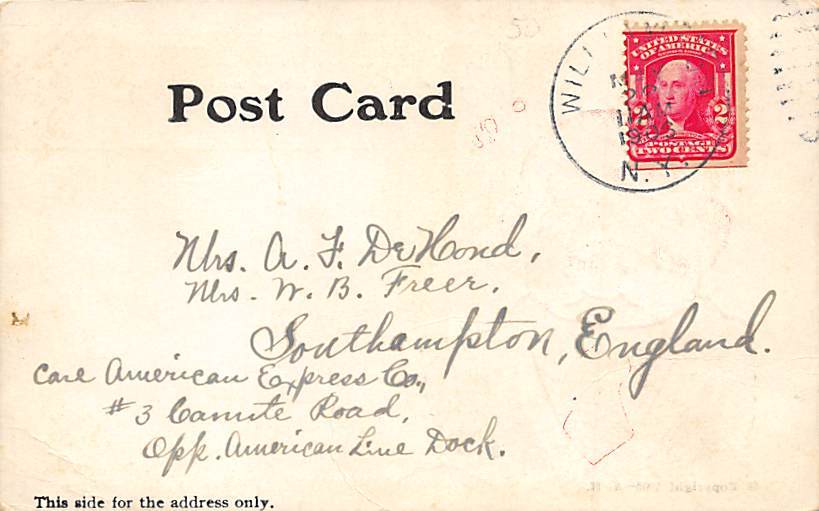 Post Card
UNITED STATES
OF AMERICA
26
11 AM
N. Y.
2
POSTAGE
TWO CENTS
Mrs. A. F. DeHond,
Mrs. W. B. Freer,
Southampton, England.
Care American Express Co.,
#3 Canute Road,
Opp. American Line Dock.
This side for the address only.